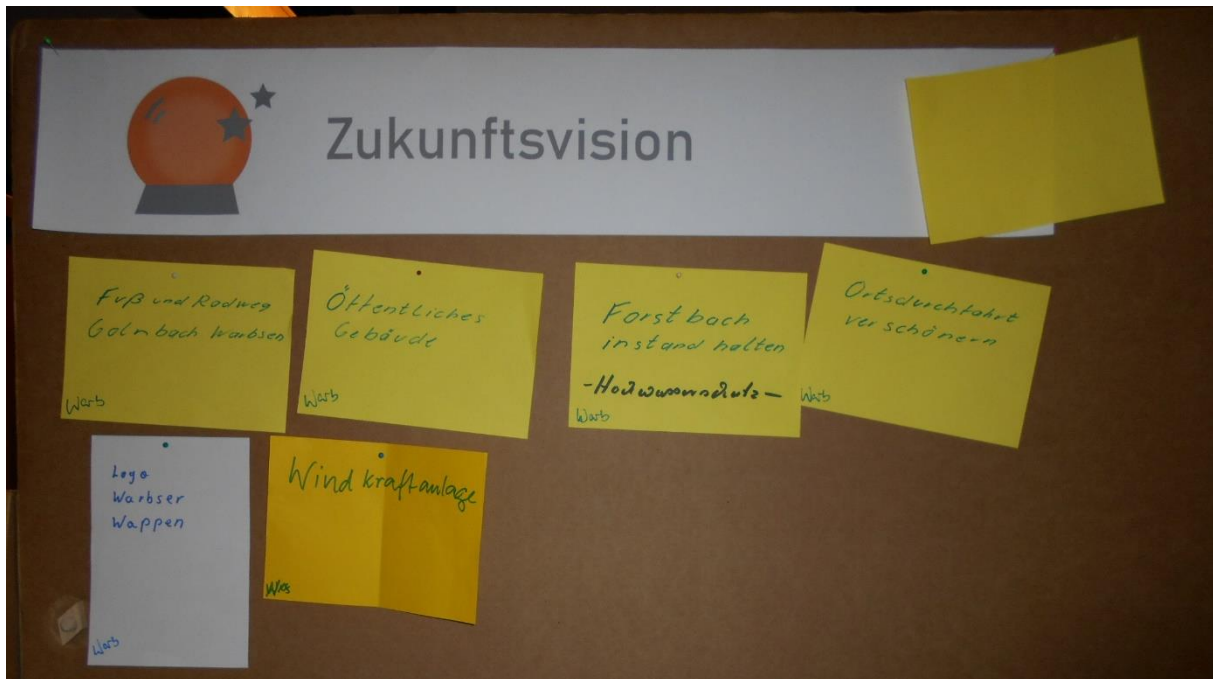 Zukunftsvision
Fuß und Radweg
Golmbach Warbsen
Warb
Öffentliches
Gebäude
Warb
Forstbach
instand halten
-Hochwasserschutz-
Warb
Ortsdurchfahrt
verschönern
Warb
Logo
Warbser
Wappen
Warb
Windkraftanlage